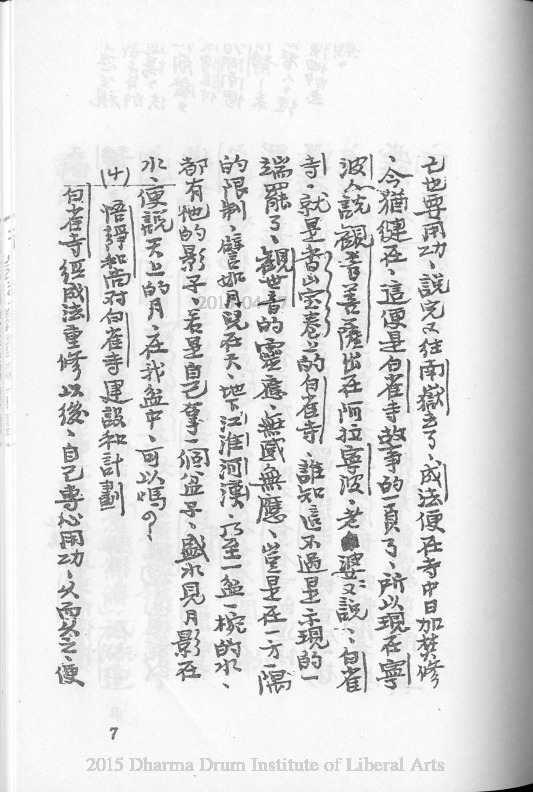 己也要用功、說完又往南嶽去了、成法便在寺中日加焚修
、今猶健在、這便是白雀寺故事的一頁了、所以現在寧
波人說觀音菩薩出在阿拉寧波、老婆又說、白雀
寺、就是香山宝卷上的白雀寺、誰知這不過是示現的一
端罷了、觀世音的靈應、無感無應、豈是在一方一隅
的限制、譬如月兒在天、地下江淮河漢、乃至一盆一椀的水、
都有牠的影子、若是自己拿一個盆子、盛水見月影在
水、便說天上的月、在我盆中、可以嗎？
(十) 悟靜和尚对白雀寺建設和計劃
白雀寺經成法重修以後、自己專心用功、久而久之、便
7
2015 Dharma Drum Institute of Liberal Arts